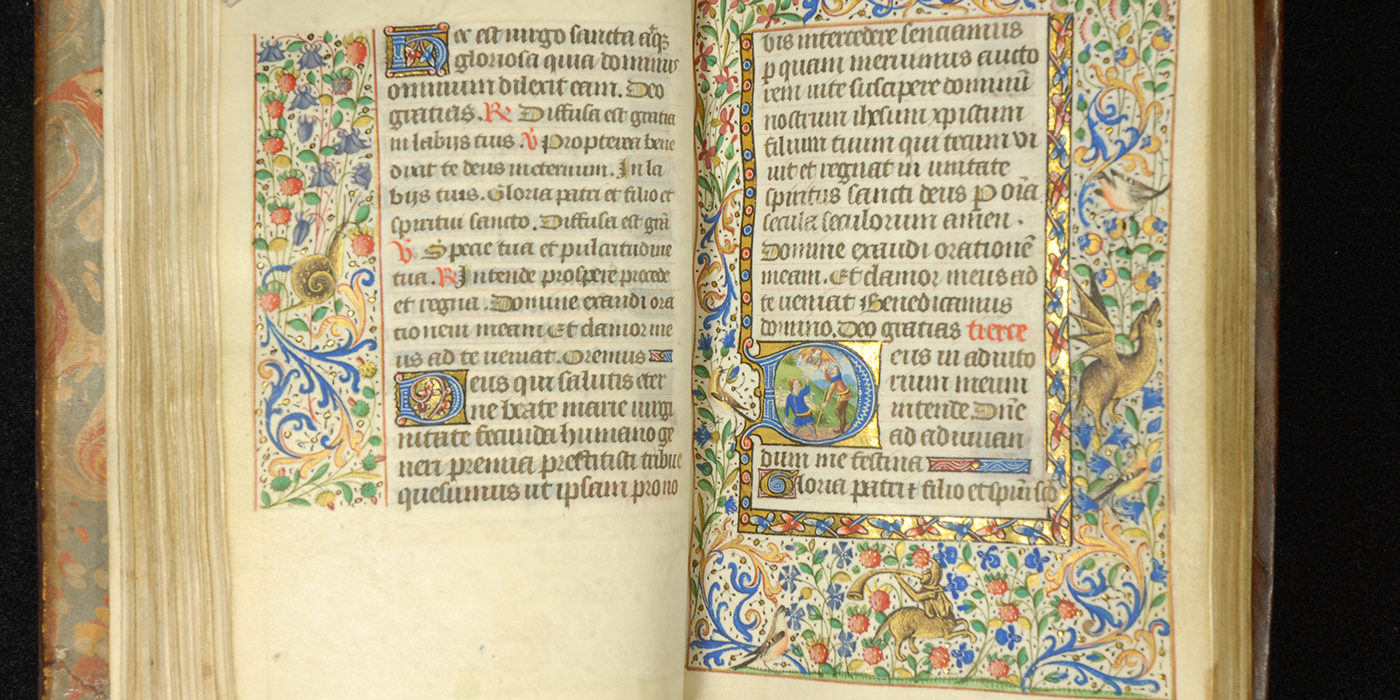 Hec est virgo sancta atq̄
gloriosa quia dominus
omnium dilexit eam. Deo
gratias. R Diffusa est gratia
in labijs tuis. V Propterea bene
dixit te deus ineternum. In la
bijs tuis. Gloria patri et filio et
spiritui sancto. Diffusa est grā
V Specie tua et pulcritudine
tua. R Intende prospere procede
et regna. Domine exaudi ora
tionem meam Et clamor me
us ad te ueniat. Oremus
Deus qui salutis eter
ne beate marie uirgi
nitate fecunda humano ge
neri premia prestitisti tribue
quesumus ut ipsam pro no
bis intercedere senciamus
ꝑ quam meruimus aucto
rem uite suscipere dominū
nostrum ihesum xpistum
filium tuum qui tecum vi
uit et regnat in unitate
spiritus sancti deus P oīa
secula seculorum amen.
Domine exaudi orationē
meam. Et clamor meus ad
te ueniat Benedicamus
domino. Deo gratias tierce
Deus in adiuto
rium meum
intende Dn̄e
ad adiuuan
dum me festina
Gloria patri et filio et spūi scō